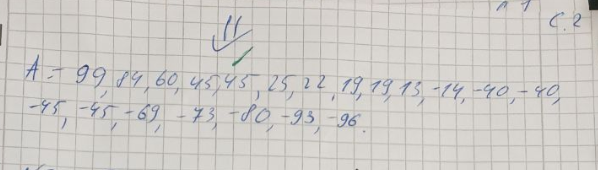 С.2
11
A = 99, 84, 60, 45, 45, 25, 22, 19, 19, 13, -14, -40, -40,
-45, -45, -69, -73, -80, -93, -96.